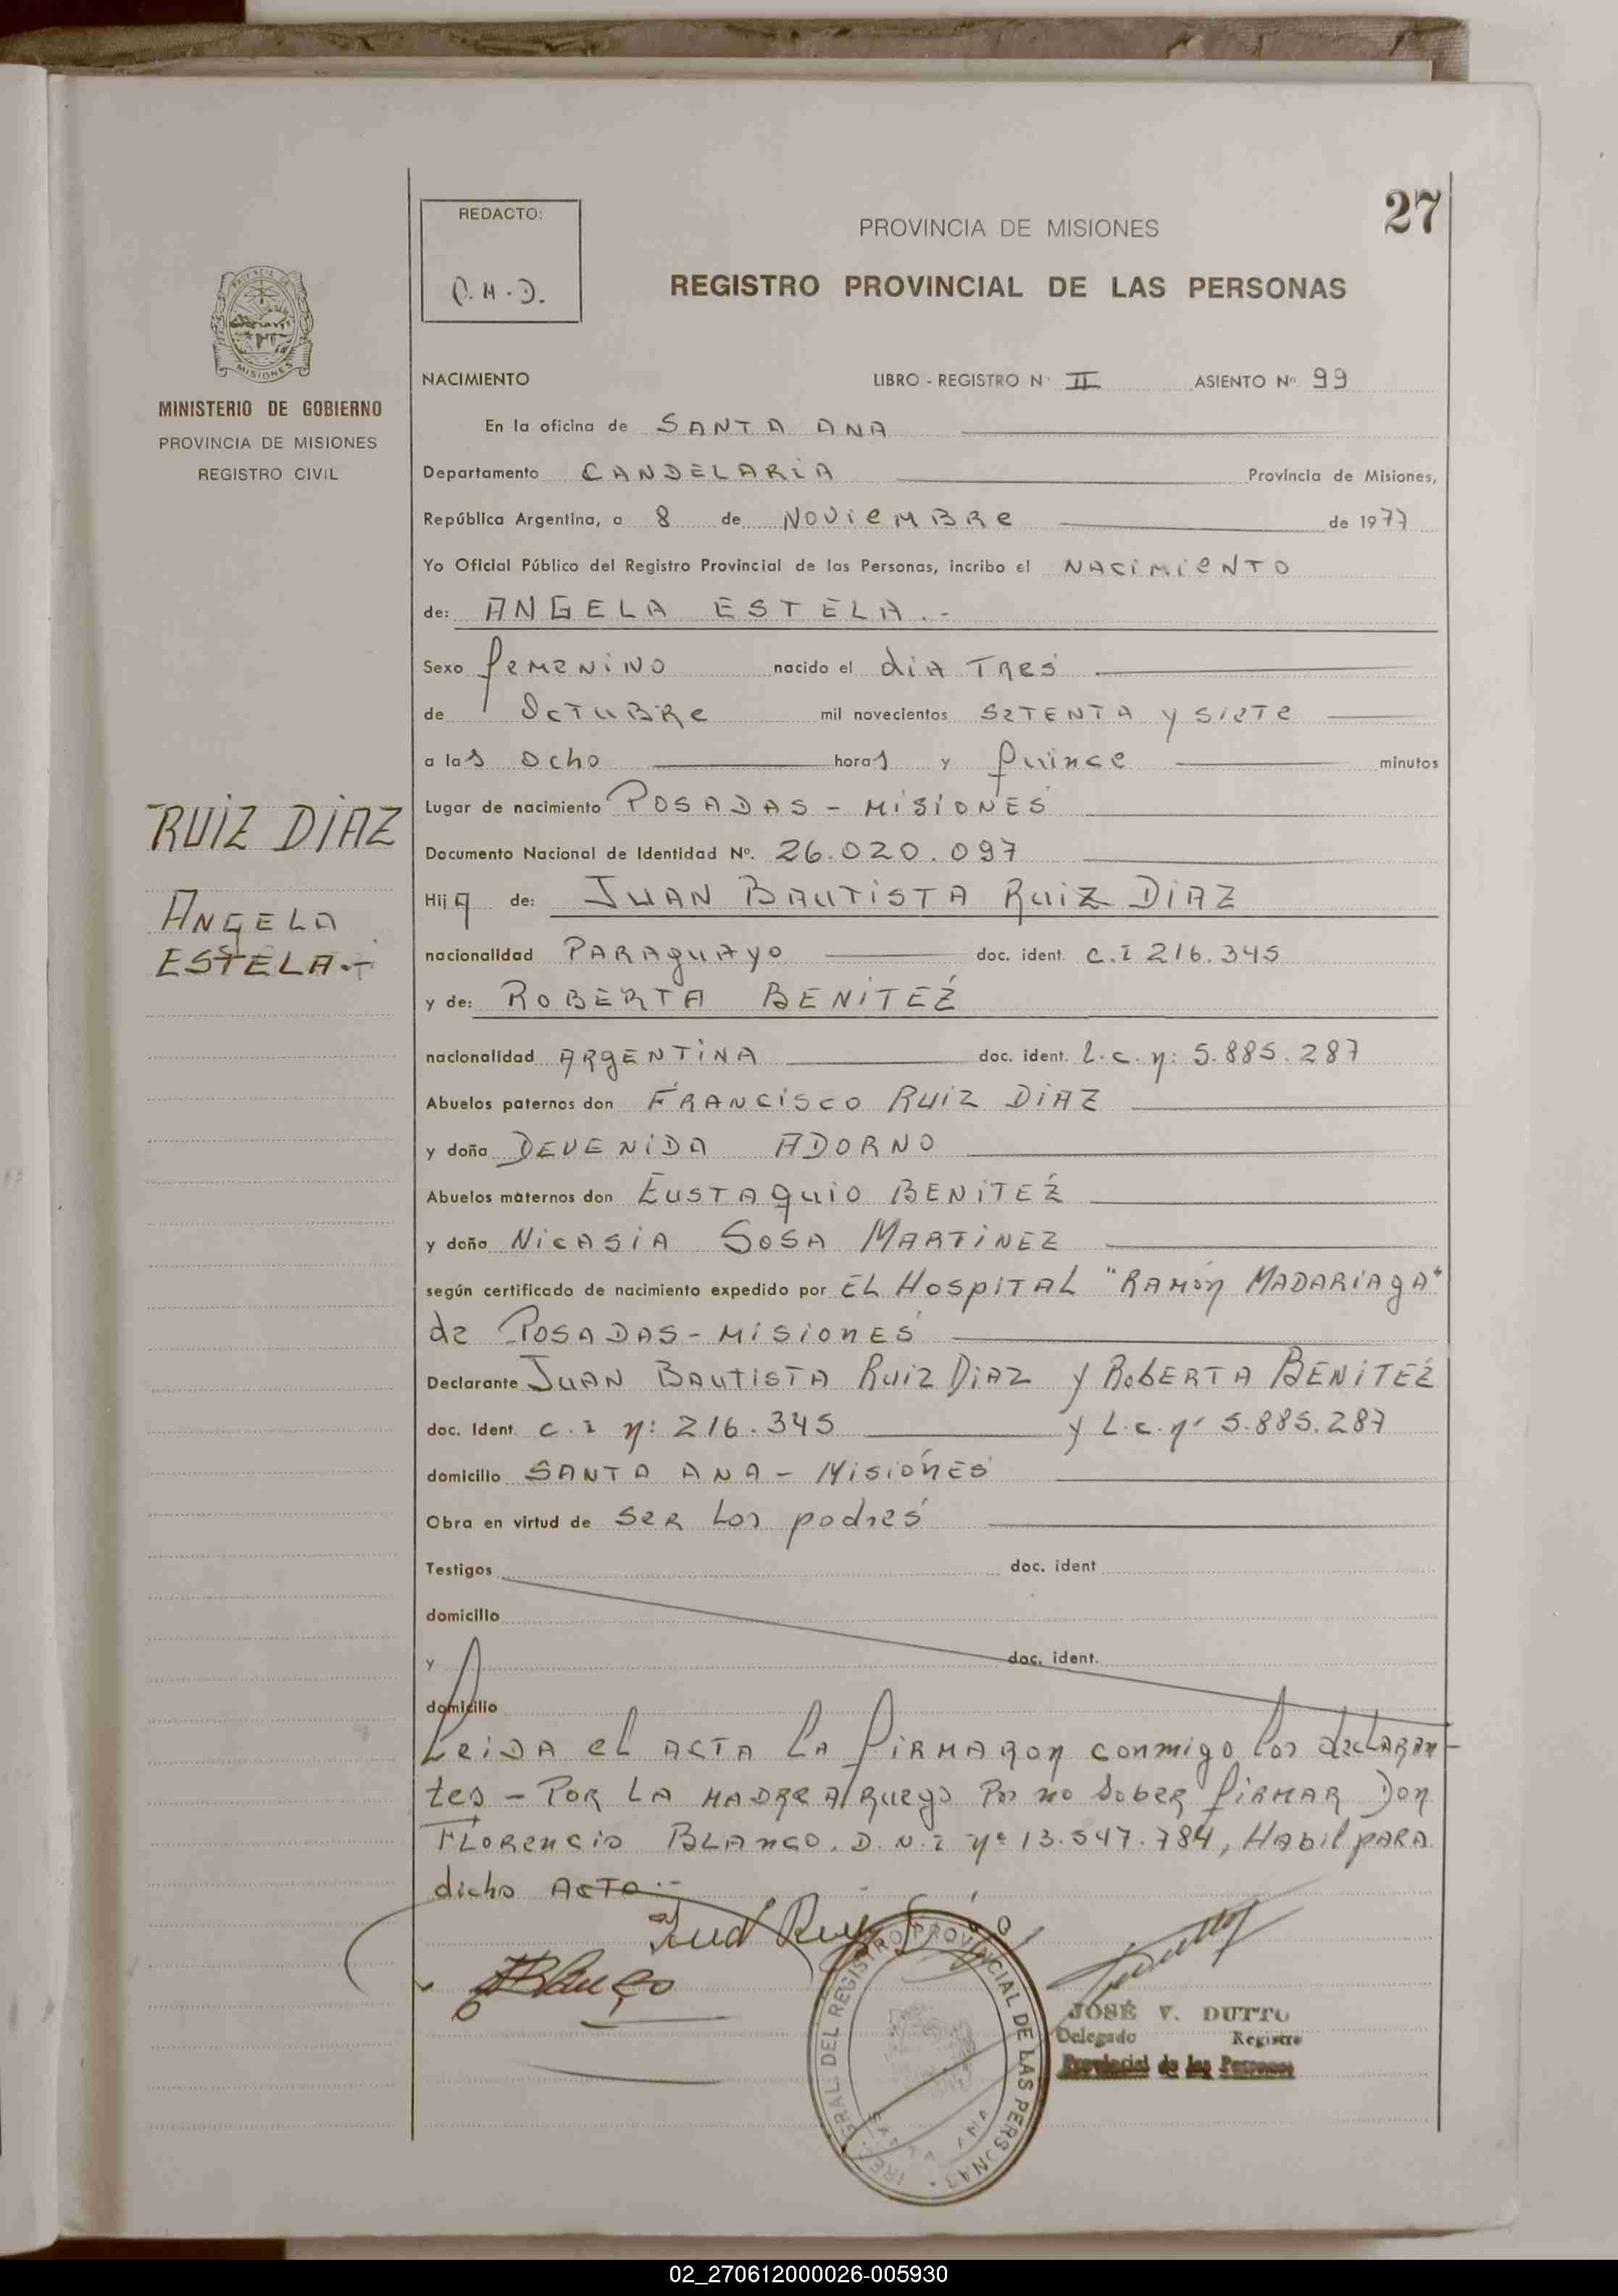 27
REDACTO:
PROVINCIA DE MISIONES
REGISTRO PROVINCIAL DE LAS PERSONAS
MISIONES
MINISTERIO DE GOBIERNO
PROVINCIA DE MISIONES
REGISTRO CIVIL
NACIMIENTO LIBRO - REGISTRO Nº II ASIENTO Nº 99
En la oficina de SANTA ANA
Departamento CANDELARIA Provincia de Misiones,
República Argentina, a 8 de NOVIEMBRE de 1977
Yo Oficial Público del Registro Provincial de las Personas, incribo el NACIMIENTO
de: ANGELA ESTELA.-
Sexo femenino nacido el dia TRES
de OCTUBRE mil novecientos SETENTA y SIETE
a las ocho horas y quince minutos
RUIZ DIAZ
ANGELA
ESTELA.-
Lugar de nacimiento POSADAS - MISIONES
Documento Nacional de Identidad Nº. 26.020.097
Hija de: JUAN BAUTISTA RUIZ DIAZ
nacionalidad PARAGUAYO doc. ident. C.I 216.345
y de: ROBERTA BENITEZ
nacionalidad ARGENTINA doc. ident. L.C. nº: 5.885.287
Abuelos paternos don FRANCISCO RUIZ DIAZ
y doña DEVENIDA ADORNO
Abuelos maternos don EUSTAQUIO BENITEZ
y doña NICASIA SOSA MARTINEZ
según certificado de nacimiento expedido por EL HOSPITAL "RAMON MADARIAGA"
de POSADAS - MISIONES
Declarante JUAN BAUTISTA RUIZ DIAZ y ROBERTA BENITEZ
doc. Ident. C.I nº: 216.345 y L.C. nº 5.885.287
domicilio SANTA ANA - MISIONES
Obra en virtud de SER Los padres
Testigos doc. ident
domicilio
y doc. ident.
domicilio
Leida el ACTA LA FIRMARON conmigo los declaran-
tes - POR LA MADRE A Ruego Por no saber firmar Don
FLORENCIO BLANCO. D.N.I nº 13.547.784, Habil para
dicho ACTO.-
Blanco
DEL REGISTRO PROVINCIAL DE LAS PERSONAS
SANTA ANA
JOSÉ V. DUTTO
Delegado Registro
Provincial de las Personas
02_270612000026-005930